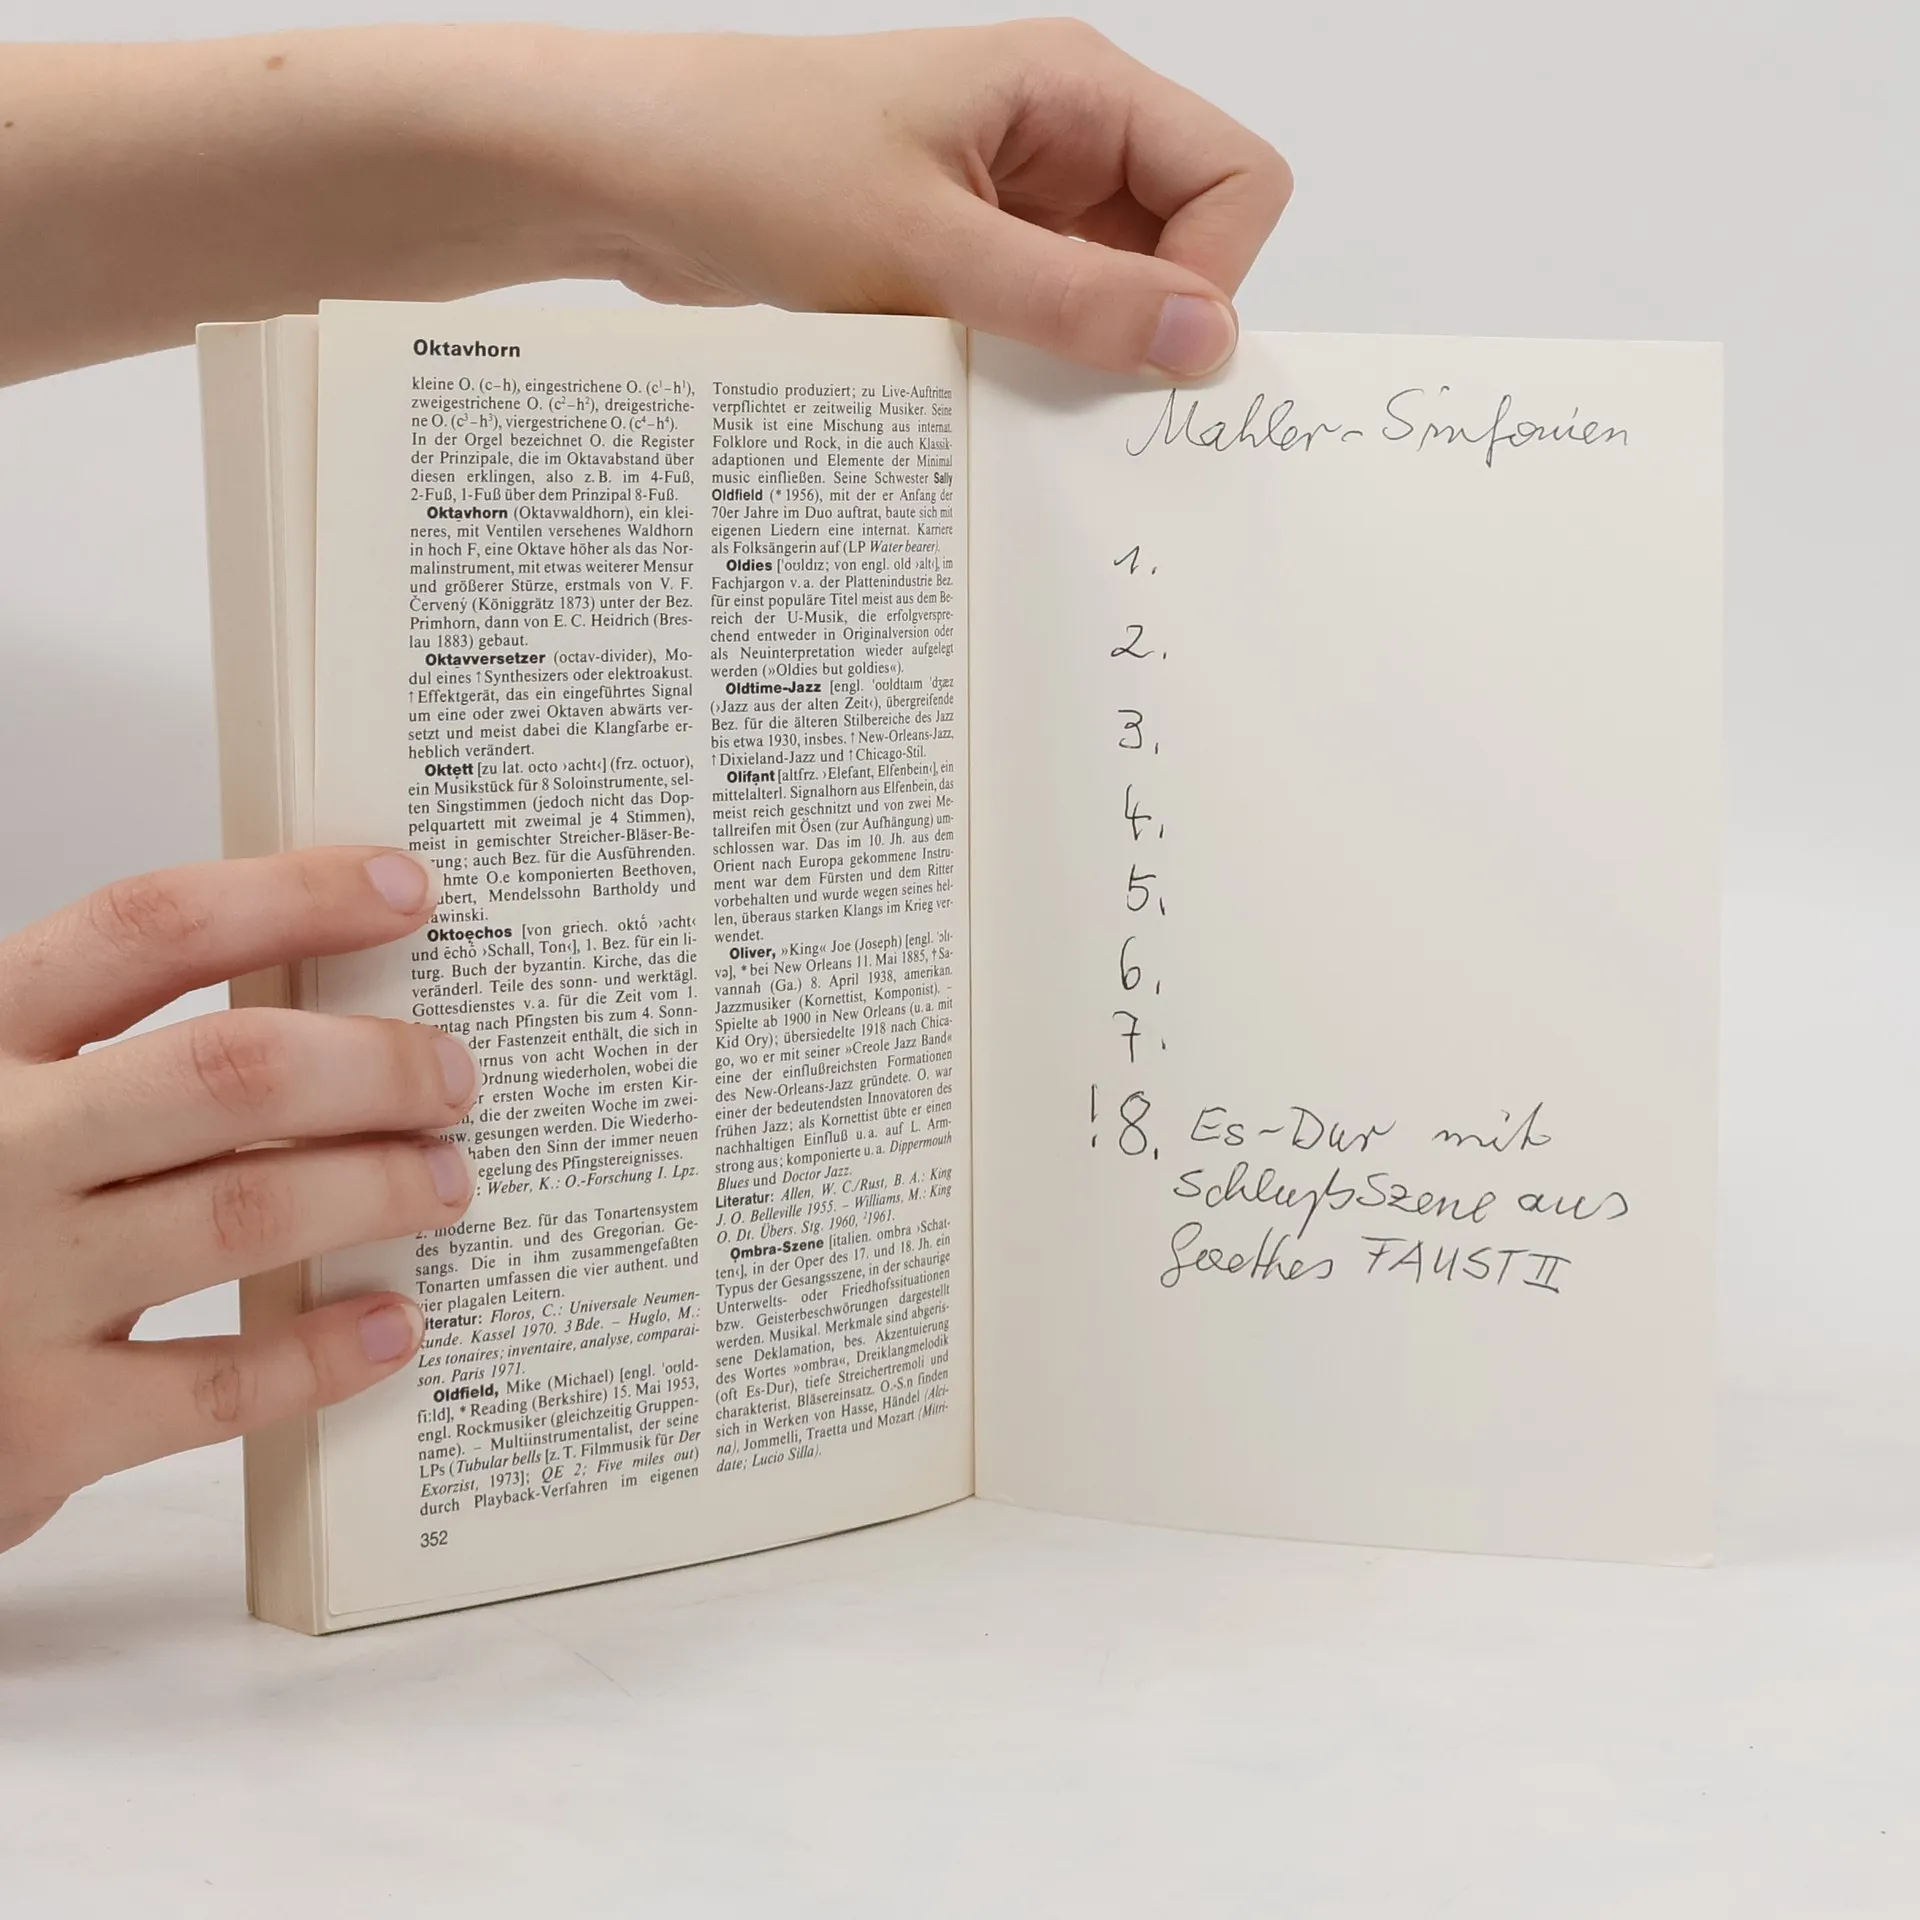 Oktavhorn
kleine O. (c–h), eingestrichene O. (c¹–h¹),
zweigestrichene O. (c²–h²), dreigestriche-
ne O. (c³–h³), viergestrichene O. (c⁴–h⁴).
In der Orgel bezeichnet O. die Register
der Prinzipale, die im Oktavabstand über
diesen erklingen, also z. B. im 4-Fuß,
2-Fuß, 1-Fuß über dem Prinzipal 8-Fuß.
Oktavhorn (Oktavwaldhorn), ein klei-
neres, mit Ventilen versehenes Waldhorn
in hoch F, eine Oktave höher als das Nor-
malinstrument, mit etwas weiterer Mensur
und größerer Stürze, erstmals von V. F.
Červený (Königgrätz 1873) unter der Bez.
Primhorn, dann von E. C. Heidrich (Bres-
lau 1883) gebaut.
Oktavversetzer (octav-divider), Mo-
dul eines ↑Synthesizers oder elektroakust.
↑Effektgerät, das ein eingeführtes Signal
um eine oder zwei Oktaven abwärts ver-
setzt und meist dabei die Klangfarbe er-
heblich verändert.
Oktett [zu lat. octo ›acht‹] (frz. octuor),
ein Musikstück für 8 Soloinstrumente, sel-
ten Singstimmen (jedoch nicht das Dop-
pelquartett mit zweimal je 4 Stimmen),
meist in gemischter Streicher-Bläser-Be-
rung; auch Bez. für die Ausführenden.
hmte O.e komponierten Beethoven,
ubert, Mendelssohn Bartholdy und
awinski.
Oktoechos [von griech. oktṓ ›acht‹
und ēchō ›Schall, Ton‹], 1. Bez. für ein li-
turg. Buch der byzantin. Kirche, das die
veränderl. Teile des sonn- und werktägl.
Gottesdienstes v. a. für die Zeit vom 1.
ntag nach Pfingsten bis zum 4. Sonn-
der Fastenzeit enthält, die sich in
rnus von acht Wochen in der
Ordnung wiederholen, wobei die
r ersten Woche im ersten Kir-
, die der zweiten Woche im zwei-
usw. gesungen werden. Die Wiederho-
haben den Sinn der immer neuen
egelung des Pfingstereignisses.
: Weber, K.: O.-Forschung I. Lpz.
2. moderne Bez. für das Tonartensystem
des byzantin. und des Gregorian. Ge-
sangs. Die in ihm zusammengefaßten
Tonarten umfassen die vier authent. und
vier plagalen Leitern.
iteratur: Floros, C.: Universale Neumen-
kunde. Kassel 1970. 3 Bde. – Huglo, M.:
Les tonaires; inventaire, analyse, comparai-
son. Paris 1971.
Oldfield, Mike (Michael) [engl. 'oʊld-
fiːld], * Reading (Berkshire) 15. Mai 1953,
engl. Rockmusiker (gleichzeitig Gruppen-
name). – Multiinstrumentalist, der seine
LPs (Tubular bells [z. T. Filmmusik für Der
Exorzist, 1973]; QE 2; Five miles out)
durch Playback-Verfahren im eigenen
352
Tonstudio produziert; zu Live-Auftritten
verpflichtet er zeitweilig Musiker. Seine
Musik ist eine Mischung aus internat.
Folklore und Rock, in die auch Klassik-
adaptionen und Elemente der Minimal
music einfließen. Seine Schwester Sally
Oldfield (* 1956), mit der er Anfang der
70er Jahre im Duo auftrat, baute sich mit
eigenen Liedern eine internat. Karriere
als Folksängerin auf (LP Water bearer).
Oldies ['oʊldɪz; von engl. old ›alt‹], im
Fachjargon v. a. der Plattenindustrie Bez.
für einst populäre Titel meist aus dem Be-
reich der U-Musik, die erfolgverspre-
chend entweder in Originalversion oder
als Neuinterpretation wieder aufgelegt
werden (»Oldies but goldies«).
Oldtime-Jazz [engl. 'oʊldtaɪm 'dʒæz
(›Jazz aus der alten Zeit‹), übergreifende
Bez. für die älteren Stilbereiche des Jazz
bis etwa 1930, insbes. ↑New-Orleans-Jazz,
↑Dixieland-Jazz und ↑Chicago-Stil.
Olifant [altfrz. ›Elefant, Elfenbein‹], ein
mittelalterl. Signalhorn aus Elfenbein, das
meist reich geschnitzt und von zwei Me-
tallreifen mit Ösen (zur Aufhängung) um-
schlossen war. Das im 10. Jh. aus dem
Orient nach Europa gekommene Instru-
ment war dem Fürsten und dem Ritter
vorbehalten und wurde wegen seines hel-
len, überaus starken Klangs im Krieg ver-
wendet.
Oliver, »King« Joe (Joseph) [engl. 'ɔlɪ-
və], * bei New Orleans 11. Mai 1885, † Sa-
vannah (Ga.) 8. April 1938, amerikan.
Jazzmusiker (Kornettist, Komponist). –
Spielte ab 1900 in New Orleans (u. a. mit
Kid Ory); übersiedelte 1918 nach Chica-
go, wo er mit seiner »Creole Jazz Band«
eine der einflußreichsten Formationen
des New-Orleans-Jazz gründete. O. war
einer der bedeutendsten Innovatoren des
frühen Jazz; als Kornettist übte er einen
nachhaltigen Einfluß u. a. auf L. Arm-
strong aus; komponierte u. a. Dippermouth
Blues und Doctor Jazz.
Literatur: Allen, W. C./Rust, B. A.: King
J. O. Belleville 1955. – Williams, M.: King
O. Dt. Übers. Stg. 1960, ²1961.
Ombra-Szene [italien. ombra ›Schat-
ten‹], in der Oper des 17. und 18. Jh. ein
Typus der Gesangsszene, in der schaurige
Unterwelts- oder Friedhofssituationen
bzw. Geisterbeschwörungen dargestellt
werden. Musikal. Merkmale sind abgeris-
sene Deklamation, bes. Akzentuierung
des Wortes »ombra«, Dreiklangmelodik
(oft Es-Dur), tiefe Streichertremoli und
charakterist. Bläsereinsatz. O.-S.n finden
sich in Werken von Hasse, Händel (Alci-
na), Jommelli, Traetta und Mozart (Mitri-
date; Lucio Silla).
Mahler-Sinfonien
1.
2.
3.
4.
5.
6.
7.
!8. Es-Dur mit
Schlußszene aus
Goethes FAUST II